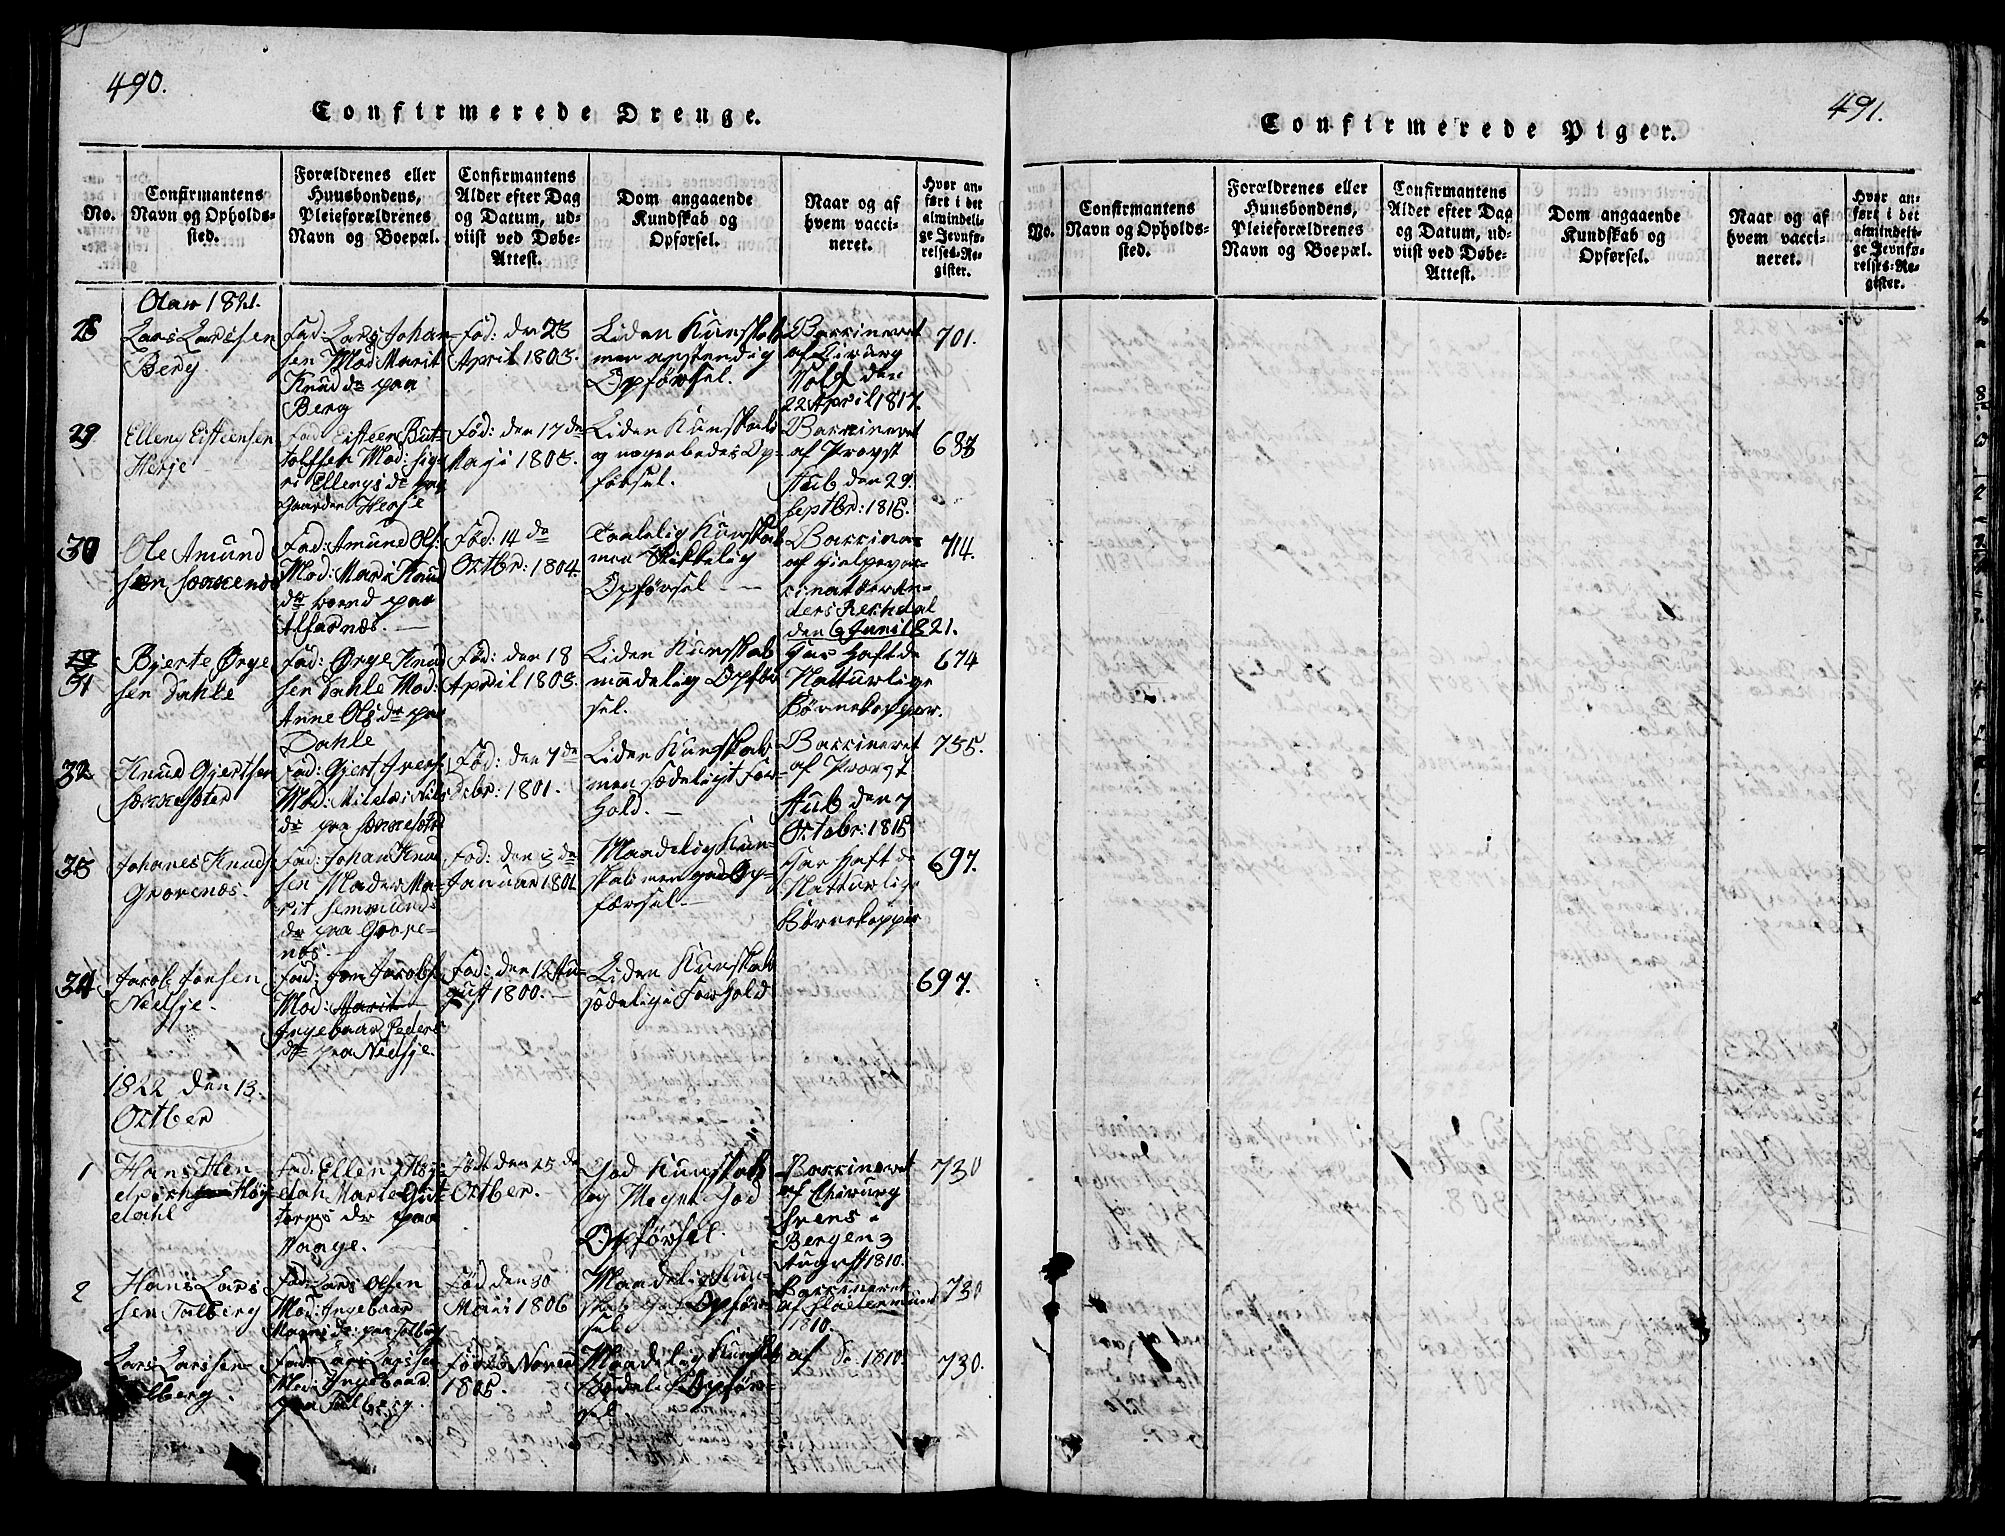 490.
Confirmerede Drenge.
No.
Confirmantens
Navn og Opholds-
sted.
Forældrenes eller
Huusbondens,
Pleieforældrenes
Navn og Boepæl.
Confirmantens
Alder efter Dag
og Datum, ud-
viist ved Døbe-
Attest.
Dom angaaende
Kundskab og
Opførsel.
Naar og af
hvem vacci-
neret.
Hvor an-
ført i det
almindeli-
ge Jevnfø-
relses-Re-
gister.
1821.
28
Lars Larssen
Berg
Fad: Lars Johan
sen Mod: Marit
Knud dr paa
Berg
Fød: den 23
April 1803.
Liden Kunskab
men anstendig
Opførsel.
Vaccineret
af Cirurg
Wolf den
22 April 1817.
701.
29
Elleng Eisteensen
Herje
Fad: Eisteen But-
tolfsen Mod: Sig-
ri Ellengs dr paa
Gaarden Herje
Fød: den 17 de
Maji 1803.
Liden Kunskab
og nogenledes Op-
førsel.
Vaccineret
af Provst
Stub den 29
Septbr: 1815.
688
30
Ole Amund
sen
Fad: Amund Ols:
Mod: Mari Knud
dr paa
Alfarnæs.
Fød: 14 de
Octbr: 1804.
Taalelig Kunskab
men Skikkelig
Opførsel
Vaccine-
af Hielpevac-
cinatter An-
ders Rechdal
den 6 Juni 1821.
714.
31
Bjerte Ørge
sen Dahle
Fad: Ørge Knud
sen Dahle Mod:
Anne Ols dr paa
Dahle
Fød: den 18
April 1803.
Liden Kunskab
maadelig Opfør
sel.
Har Hafte
Natturlige
Børnekopper.
674
32
Knud Gjertsen
Fad: Gjert Ivers
Mod: Nils
dr paa
Fød: den 7 de
Dcbr: 1801.
Liden Kunskab
men sædeligt For-
Hold.
Vaccineret
af Provst
Stub den 7
Octobr: 1815
755.
33
Johanes Knuds
Grovenæs.
Fad: Johan Knud
sen Moder Ma-
rit Semmunds
dr paa Grove-
næs.
Fød: den 3 de
Januar 1801
Maadelig Kun-
skab men god Op-
førsel
Har Hafte
Natturlige
Børnekopper
697.
34
Jacob Jonsen
Nedsje.
Fad: Jon Jacobs
Mod: Marit
Ingebaar Peders
dr paa Nedsje.
Fød: den 12 Au-
gust 1800.
Liden Kunskab
sædelige Forhold
697.
1822 den 13.
Octber
1
Hans Hen
Høy
dahl
Fad: Elleng Høy-
dah Marte Gut-
torms dr paa
Vaage.
Født den 25 de
Octber.
God Kunskab
og Meget God
Opførsel.
Vaccineret
af Chirurg
Svens i
Bergen 3
August 1810.
730
2
Hans Lars
sen Talberg
Fad: Lars Olsen
Mod: Ingebaar
dr: paa Talberg
Fød den 30
1806
Maadelig Kun-
skab God Opfør-
sel
Vaccineret
af
1810.
730
Lars Larssen
Fad: Lars Larssen
Mod: Ingebaar
paa Talberg.
1805.
Maadelig Kunskab
Sædelig Opfør-
sel
af Do 1810.
730.
491.
Confirmerede Piger.
No.
Confirmantens
Navn og Opholds-
sted.
Forældrenes eller
Huusbondens,
Pleieforældrenes
Navn og Boepæl.
Confirmantens
Alder efter Dag
og Datum, ud-
viist ved Døbe-
Attest.
Dom angaaende
Kundskab og
Opførsel.
Naar og af
hvem vacci-
neret.
Hvor an-
ført i det
almindeli-
ge Jevnfø-
relses-Re-
gister.